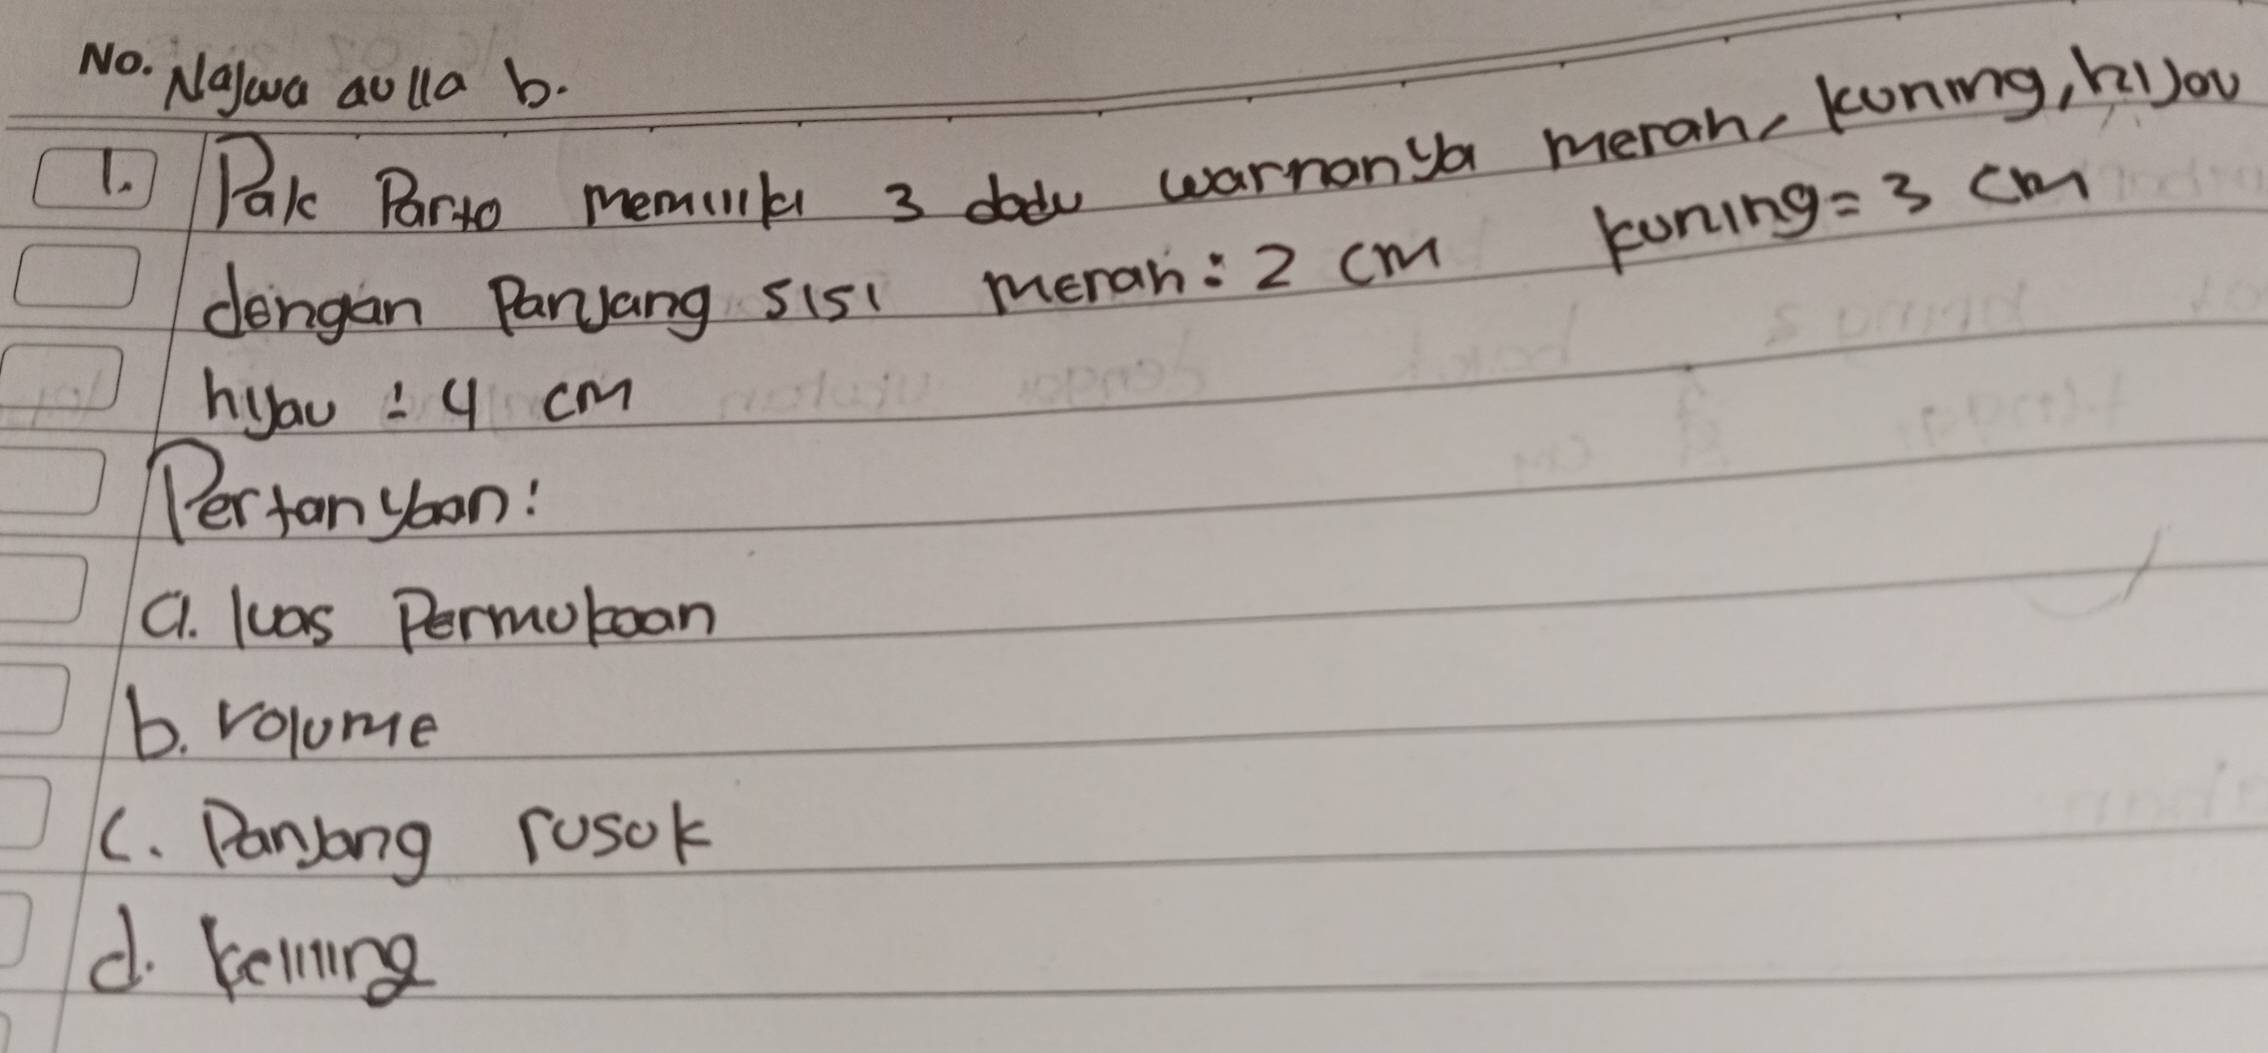 No. Najwa aulia b.
1. Pak Parto memiliki 3 dadu warnanya merah, kuning, hijau
dengan Panjang sisi merah : 2 cm kuning = 3 cm
hijau : 4 cm
Pertanyaan :
a. luas Permukaan
b. volume
c. Panjang rusuk
d. keliling